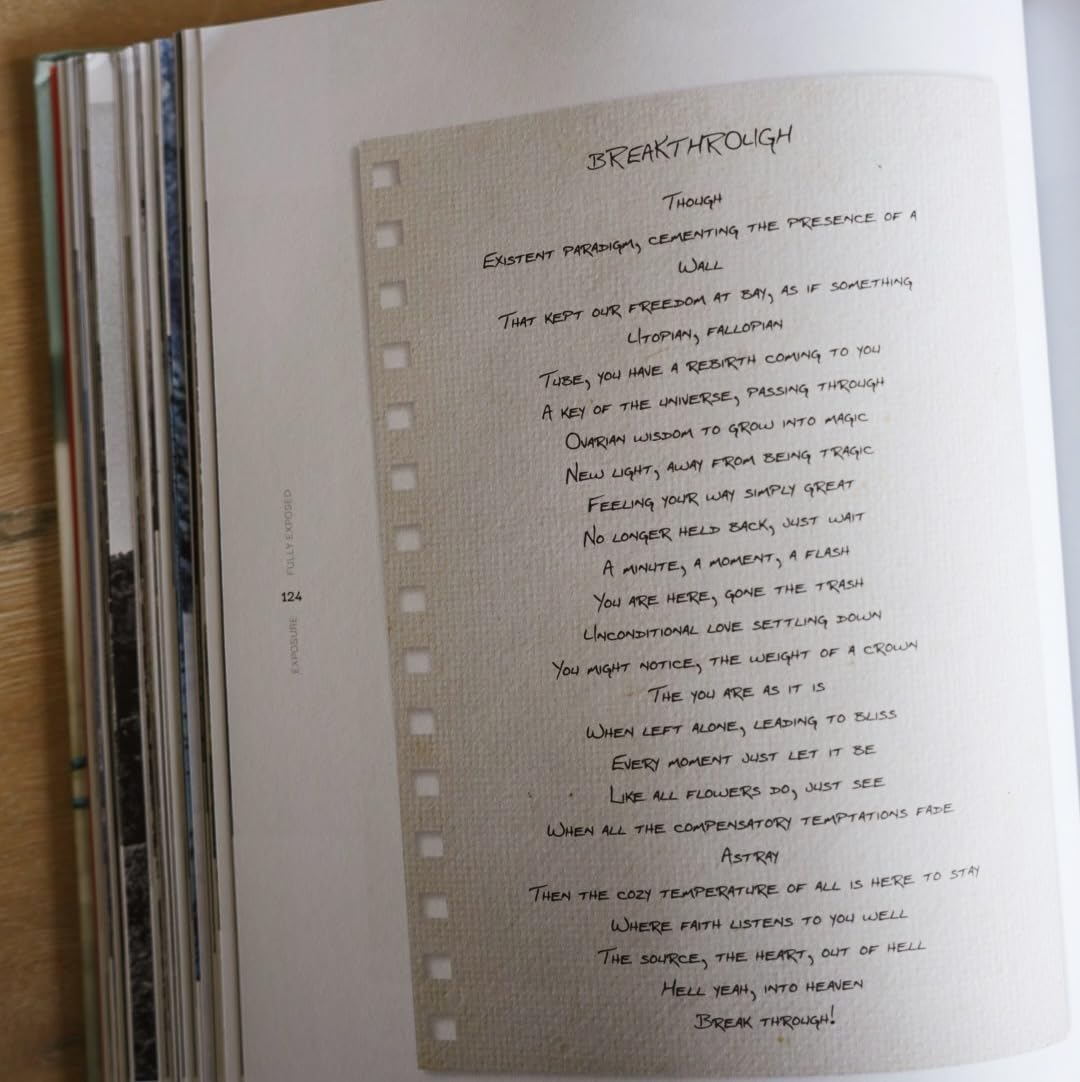 BREAKTHROUGH
THOUGH
EXISTENT PARADIGM, CEMENTING THE PRESENCE OF A
WALL
THAT KEPT OUR FREEDOM AT BAY, AS IF SOMETHING
UTOPIAN, FALLOPIAN
TUBE, YOU HAVE A REBIRTH COMING TO YOU
A KEY OF THE UNIVERSE, PASSING THROUGH
OVARIAN WISDOM TO GROW INTO MAGIC
NEW LIGHT, AWAY FROM BEING TRAGIC
FEELING YOUR WAY SIMPLY GREAT
NO LONGER HELD BACK, JUST WAIT
A MINUTE, A MOMENT, A FLASH
YOU ARE HERE, GONE THE TRASH
UNCONDITIONAL LOVE SETTLING DOWN
YOU MIGHT NOTICE, THE WEIGHT OF A CROWN
THE YOU ARE AS IT IS
WHEN LEFT ALONE, LEADING TO BLISS
EVERY MOMENT JUST LET IT BE
LIKE ALL FLOWERS DO, JUST SEE
WHEN ALL THE COMPENSATORY TEMPTATIONS FADE
ASTRAY
THEN THE COZY TEMPERATURE OF ALL IS HERE TO STAY
WHERE FAITH LISTENS TO YOU WELL
THE SOURCE, THE HEART, OUT OF HELL
HELL YEAH, INTO HEAVEN
BREAK THROUGH!
EXPOSURE
124
FULLY EXPOSED